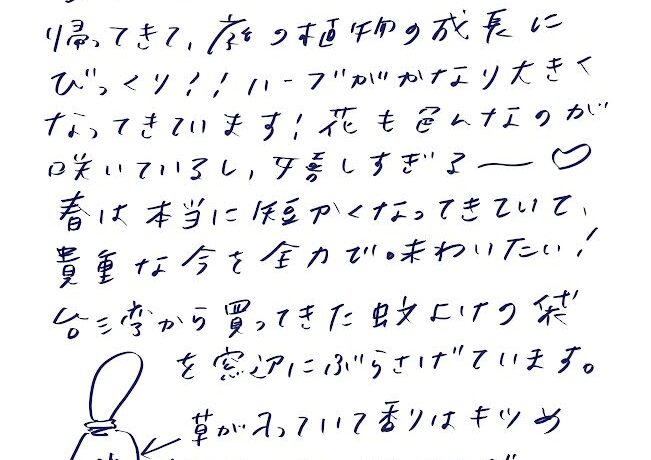 帰ってきて、庭の植物の成長に
びっくり!!ハーブがかなり大きく
なってきています!花も色んなのが
咲いているし、嬉しすぎる〜♡
春は本当に短かくなってきていて、
貴重な今を全力で味わいたい!
台湾から買ってきた蚊よけの袋
を窓辺にぶらさげています。
草が入っていて香りはキツめ